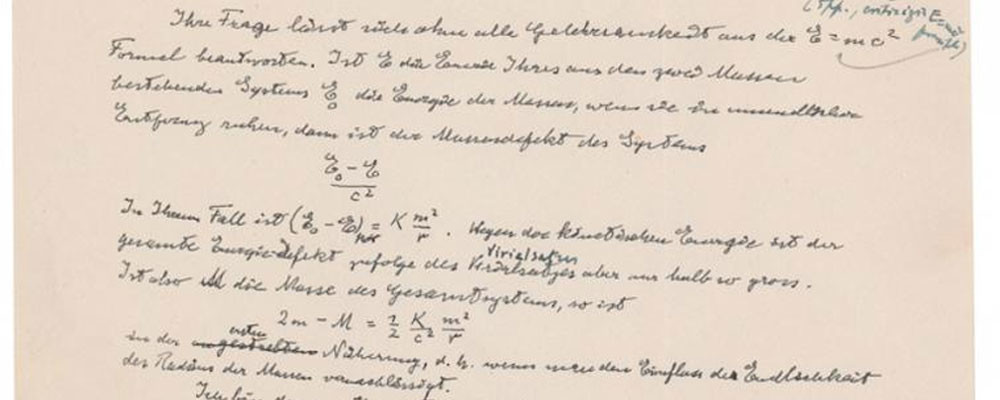 (Spp., critizis E=mc²
Ihre Frage lässt sich ohne alle Gelehrsamkeit aus der E = mc²
Formel beantworten. Ist E die Energie Ihres aus den zwei Massen
bestehenden Systems E₀ die Energie der Massen, wenn sie in unendlicher
Entfernung ruhen, dann ist der Massendefekt des Systems
E₀ - E
c²
In Ihrem Fall ist (E₀ - E)pot = K m²/r . Wegen der kinetischen Energie ist der
Virialsatzes
gesamte Energie-Defekt zufolge des Virialsatzes aber nur halb so gross.
Ist also M die Masse des Gesamtsystems, so ist
2m - M = 1/2 K/c² m²/r
ersten
in der Näherung, d. h. wenn man den Einfluss der Endlichkeit
des Radius der Massen vernachlässigt.